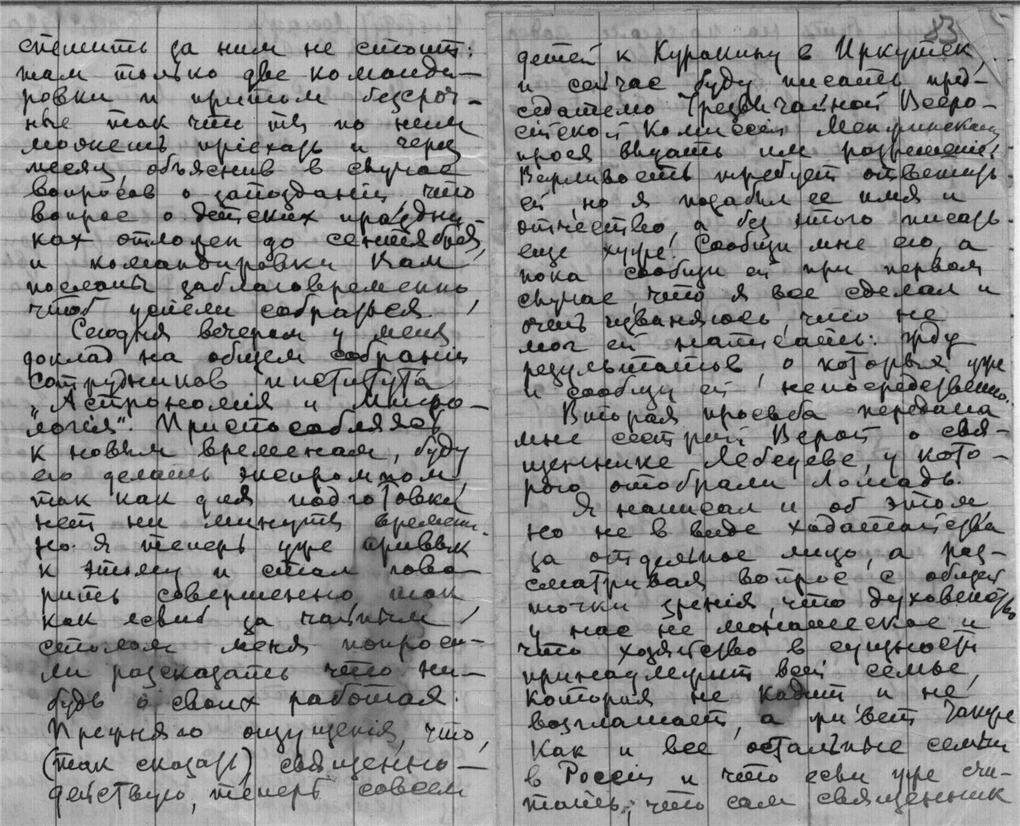 спешить за ним не стоит:
там только две команди-
ровки и притом безсроч-
ные так что ты по ним
можешь пріехать и через
месяц, объяснив в случае
вопросов о запозданіи, что
вопрос о детских праздни-
ках отложен до сентября,
и командировки Вам
посланы заблаговременно,
чтоб успели собраться.
Сегодня вечером у меня
доклад на общем собраніи
сотрудников института
„Астрономія и Миѳо-
логія". Приспособляясь
к новым временам, буду
его делать экспромтом,
так как для подготовки
нет ни минуты времени.
Но я теперь уже привык
к этому и стал гово-
рить совершенно так
как если б за чайным
столом меня попроси-
ли разсказать что ни-
будь о своих работах.
Прежняго ощущенія, что,
(так сказать) священно-
действую, теперь совсем
83
детей к Куракину в Иркутск,
и сейчас буду писать пред-
седателю Чрезвычайной Всеро-
сійской Комиссіи Менжинскому
прося выдать им разрешеніе.
Вежливость требует ответить
ей, но я позабыл ее имя и
отчество, а без этого писать
еще хуже! Сообщи мне его, а
пока сообщи ей при первом
случае, что я все сделал и
очень извиняюсь, что не
мог ей написать: жду
результатов, о которых уже
и сообщу ей непосредственно.
Вторая просьба передана
мне сестрой Верой о свя-
щеннике Лебедеве, у кото-
рого отобрали лошадь.
Я написал и об этом
но не в виде ходатайства
за отдельное лицо, а раз-
сматривая вопрос с общей
точки зренія, что духовенство
у нас не монашеское и
что хозяйство в сущности
принадлежит всей семье,
которая не кадит и не
возглашает, а живет также
как и все остальные семьи
в Россіи и что если уже счи-
тать, что сам священник